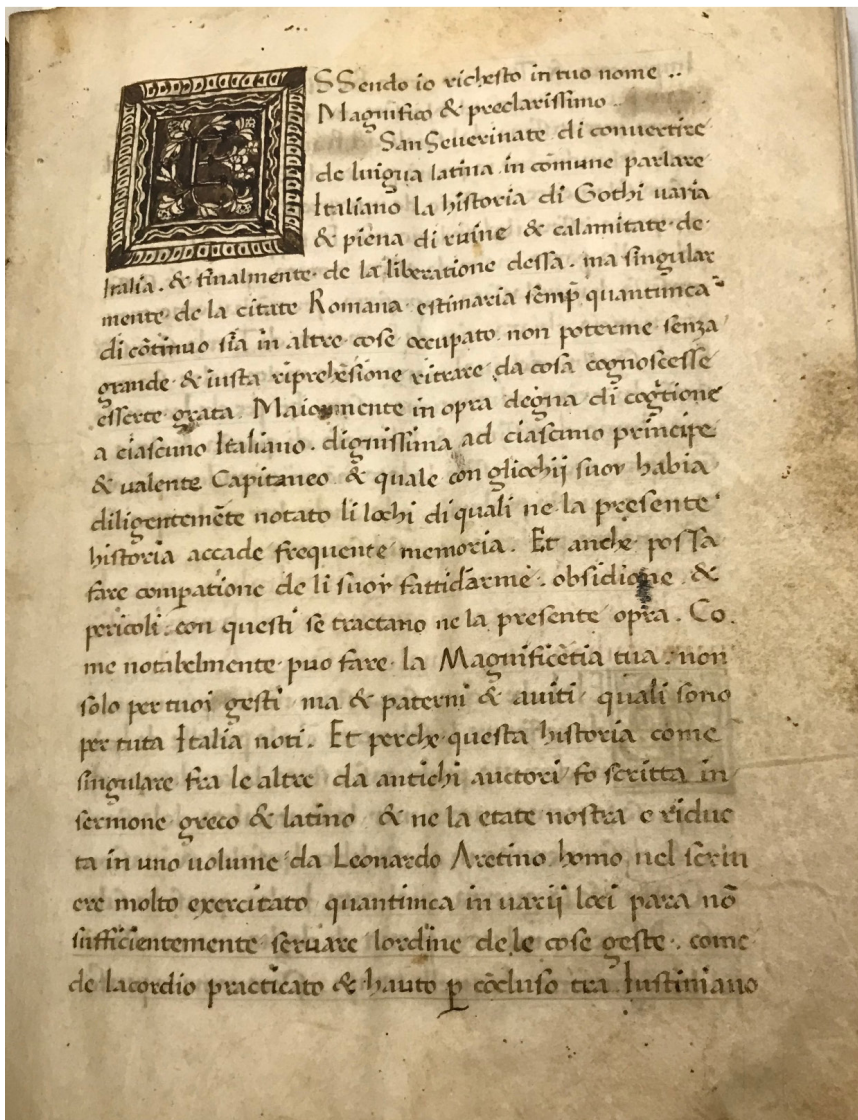 ESSendo io richesto in tuo nome ..
Magnifico & preclarissimo ..
SanSeuerinate di conuertire
de luigua latina in comune parlare
Italiano la historia di Gothi uaria
& piena di ruine & calamitate de·
Italia . & finalmente· de la liberatione dessa . ma singular
mente· de la citate Romana· estimaria semp̄ quantunca
di cōtinuo sia in altre cose occupato non poterme senza
grande & iusta riprehēsione ritrare da cosa cognoscesse
esserte grata. Maiormente in opra degna di cogtione
a ciascuno Italiano . dignissima ad ciascuno principe
& ualente Capitaneo & quale con gliochij suoy habia
diligentemēte notato li lochi di quali ne la presente
historia accade frequente memoria . Et anche possa
fare compatione de li suoy fatti darme . obsidione &
pericoli . con questi se tractano ne la presente opra . Co.
me notabelmente puo fare la Magnificētia tua . non
solo per tuoi gesti ma & paterni & auiti quali sono
per tuta Italia noti . Et perche questa historia come
singulare fra le altre da antichi auctori fo scritta in
sermone greco & latino & ne la etate nostra e riduc
ta in uno uolume da Leonardo Aretino homo nel scriu
ere molto exercitato quantunca in uarij loci para nō
sufficientemente seruare lordine de le cose geste . come
de lacordio practicato & hauto ꝑ cōcluso tra Iustiniano